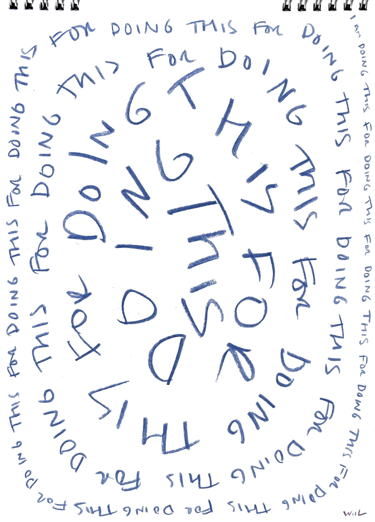 I am DOING THIS FOR DOING THIS FOR DOING THIS FOR DOING THIS FOR DOING THIS FOR DOING THIS FOR DOING THIS FOR DOING THIS FOR DOING THIS FOR DOING THIS FOR DOING THIS FOR DOING THIS FOR DOING THIS FOR DOING THIS FOR DOING THIS FOR DOING THIS FOR DOING THIS FOR DOING THIS FOR DOING THIS FOR DOING THIS
WILL